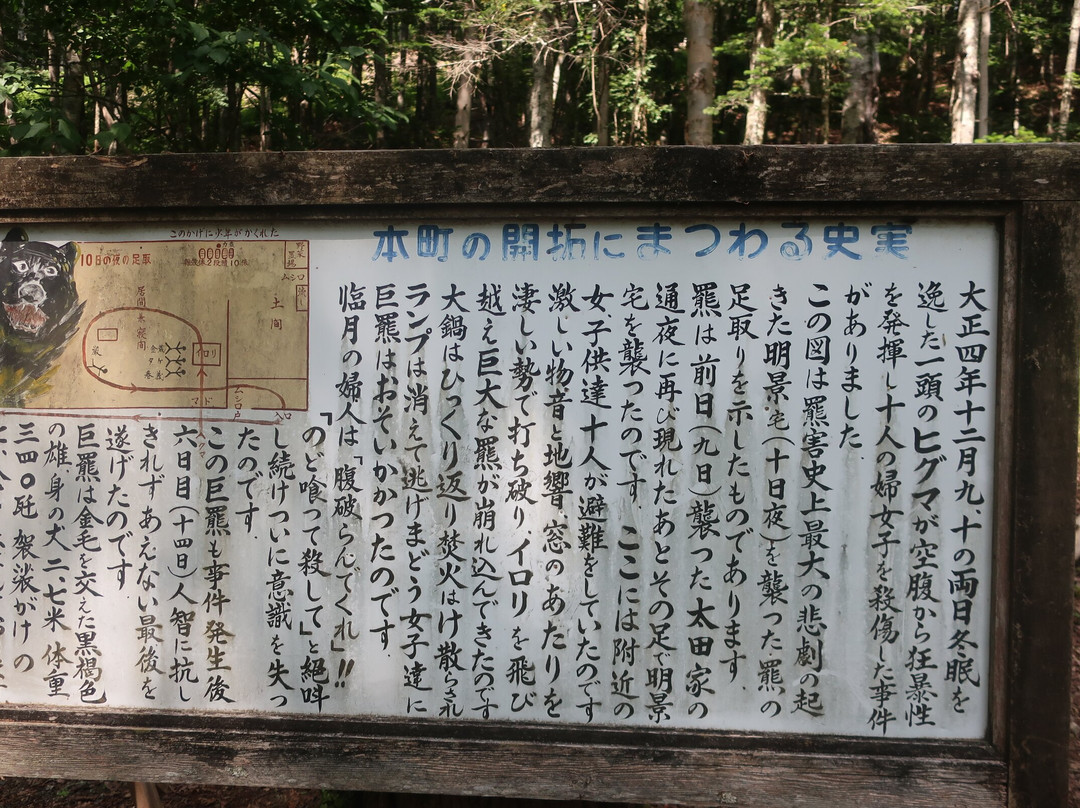 本町の開拓にまつわる史実
大正四年十二月九、十の両日冬眠を
逸した一頭のヒグマが空腹から狂暴性
を発揮し十人の婦女子を殺傷した事件
がありました。
この図は羆害史上最大の悲劇の起
きた明景宅(十日夜)を襲った羆の
足取りを示したものであります。
羆は前日(九日)襲った太田家の
通夜に再び現れたあとその足で明景
宅を襲ったのです。ここには附近の
女、子供達十人が避難をしていたのです
激しい物音と地響、窓のあたりを
凄しい勢で打ち破り、イロリを飛び
越え巨大な羆が崩れ込んできたのです
大鍋はひっくり返り焚火はけ散らされ
ランプは消えて逃げまどう女子達に
巨羆はおそいかかつたのです。
臨月の婦人は「腹破らんでくれ」!!
「のど喰って殺して」と絕叫
し続けついに意識を失っ
たのです。
この巨羆も事件発生後
六日目(十四日)人智に抗し
きれずあえない最後を
遂げたのです。
巨羆は金毛を交えた黒褐色
の雄、身の丈二、七米、体重
三四〇瓩 袈裟がけの
このかげに少年がかくれた
10日の夜の足取
野菜置場
土間
居間兼寝間
イロリ
マド
入口